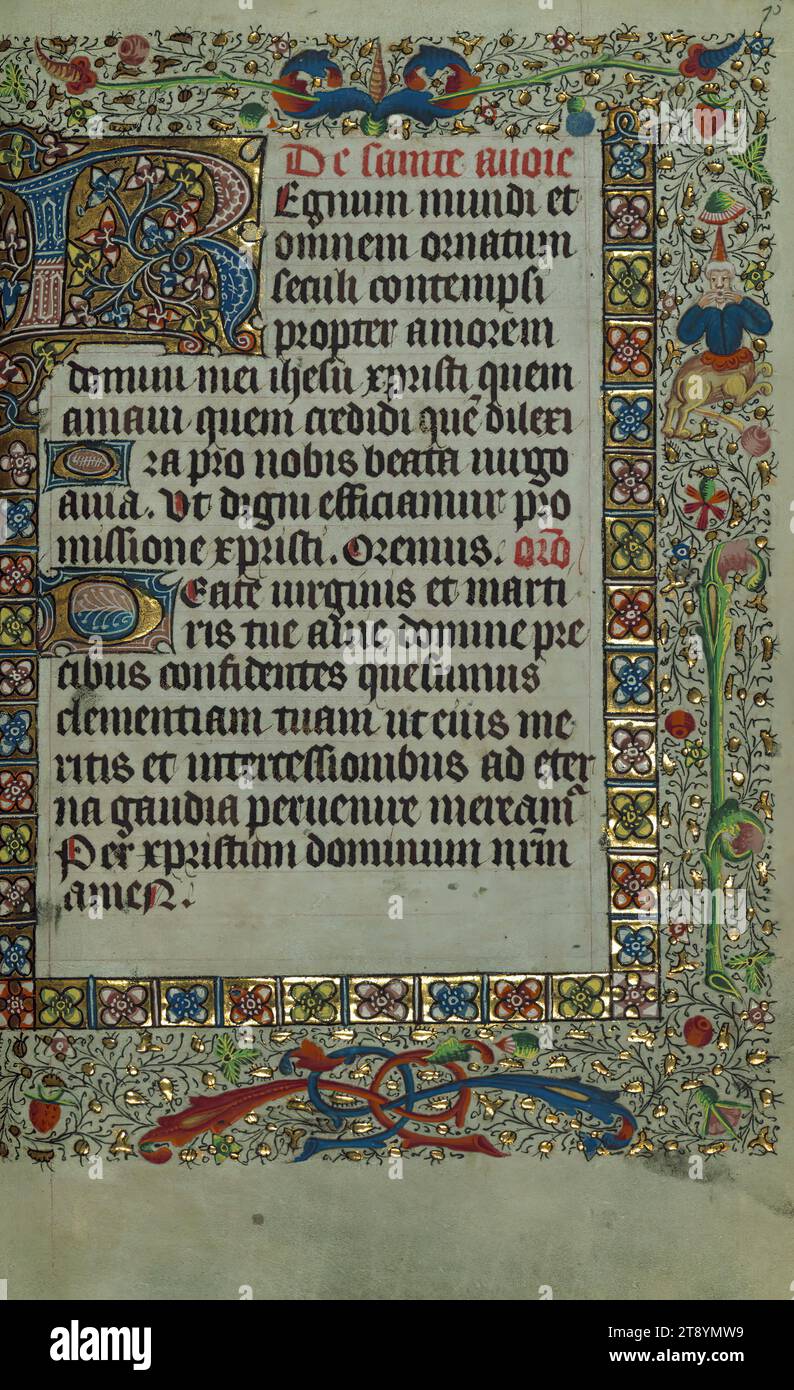 70
De sainte auoie
REgnum mundi et
omnem ornatum
seculi contempsi
propter amorem
domini mei ihesu xpristi quem
amaui quem credidi quē dilexi
Ora pro nobis beata uirgo
auia. Vt digni efficiamur pro
missione xpristi. Oremus. orō
BEate uirginis et marti
ris tue auie domine pre
cibus confidentes quesumus
clementiam tuam ut eius me
ritis et intercessionibus ad eter
na gaudia peruenire meream̄
Per xpristum dominum nr̄m
amen.
alamy
Image ID: 2T8YMW9
www.alamy.com